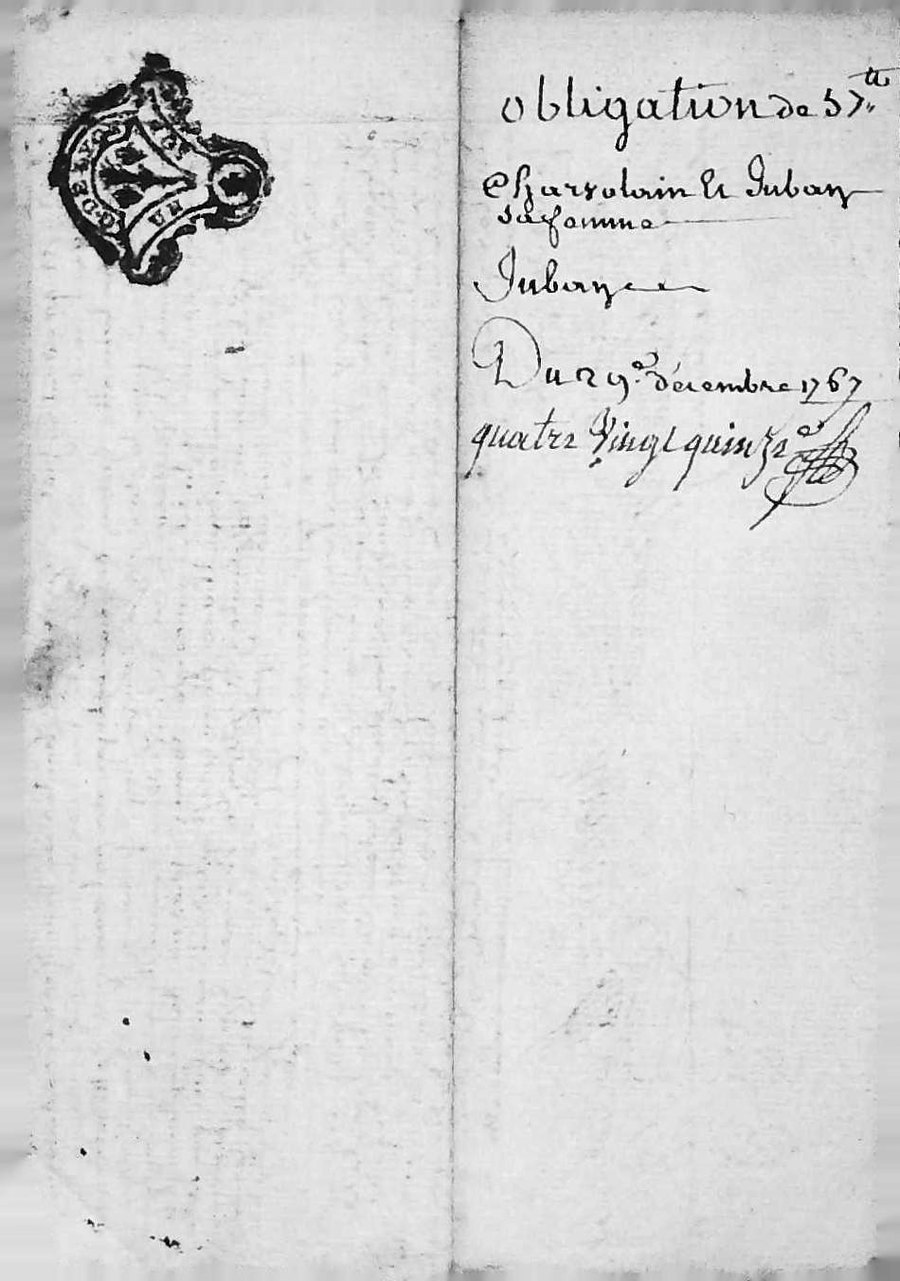 UN
obligation de 57.tt
Charsolain et Juban
sa femme
Juban
Du 29.e décembre 1767
quatre vingt quinze